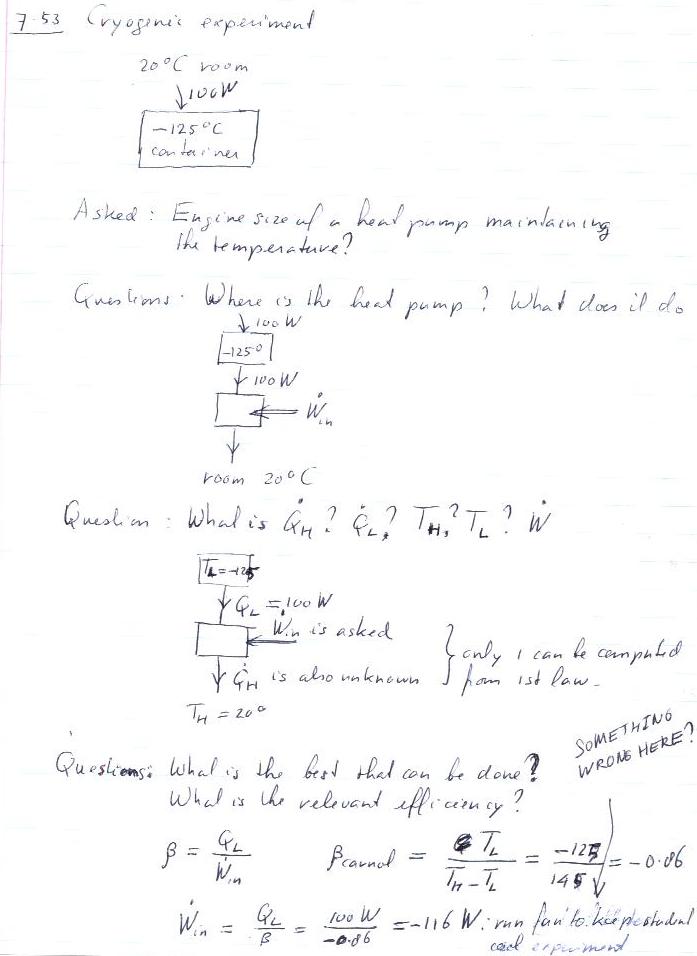 7-53 Cryogenic experiment
20°C room
100W
-125°C
container
Asked: Engine size of a heat pump maintaining
the temperature?
Questions: Where is the heat pump? What does it do
100 W
-125°
100 W
Ẇin
room 20°C
Question: What is Q̇H? Q̇L? TH? TL? Ẇ
TL = -125
Q̇L = 100 W
Ẇin is asked
Q̇H is also unknown
} only 1 can be computed
from 1st law.
TH = 20°
SOMETHING
WRONG HERE?
Questions: What is the best that can be done?
What is the relevant efficiency?
β = Q̇L / Ẇin βcarnot = TL / (TH - TL) = -125 / 145 = -0.86
Ẇin = Q̇L / β = 100 W / -0.86 = -116 W: run fan to keep student
cool experiment